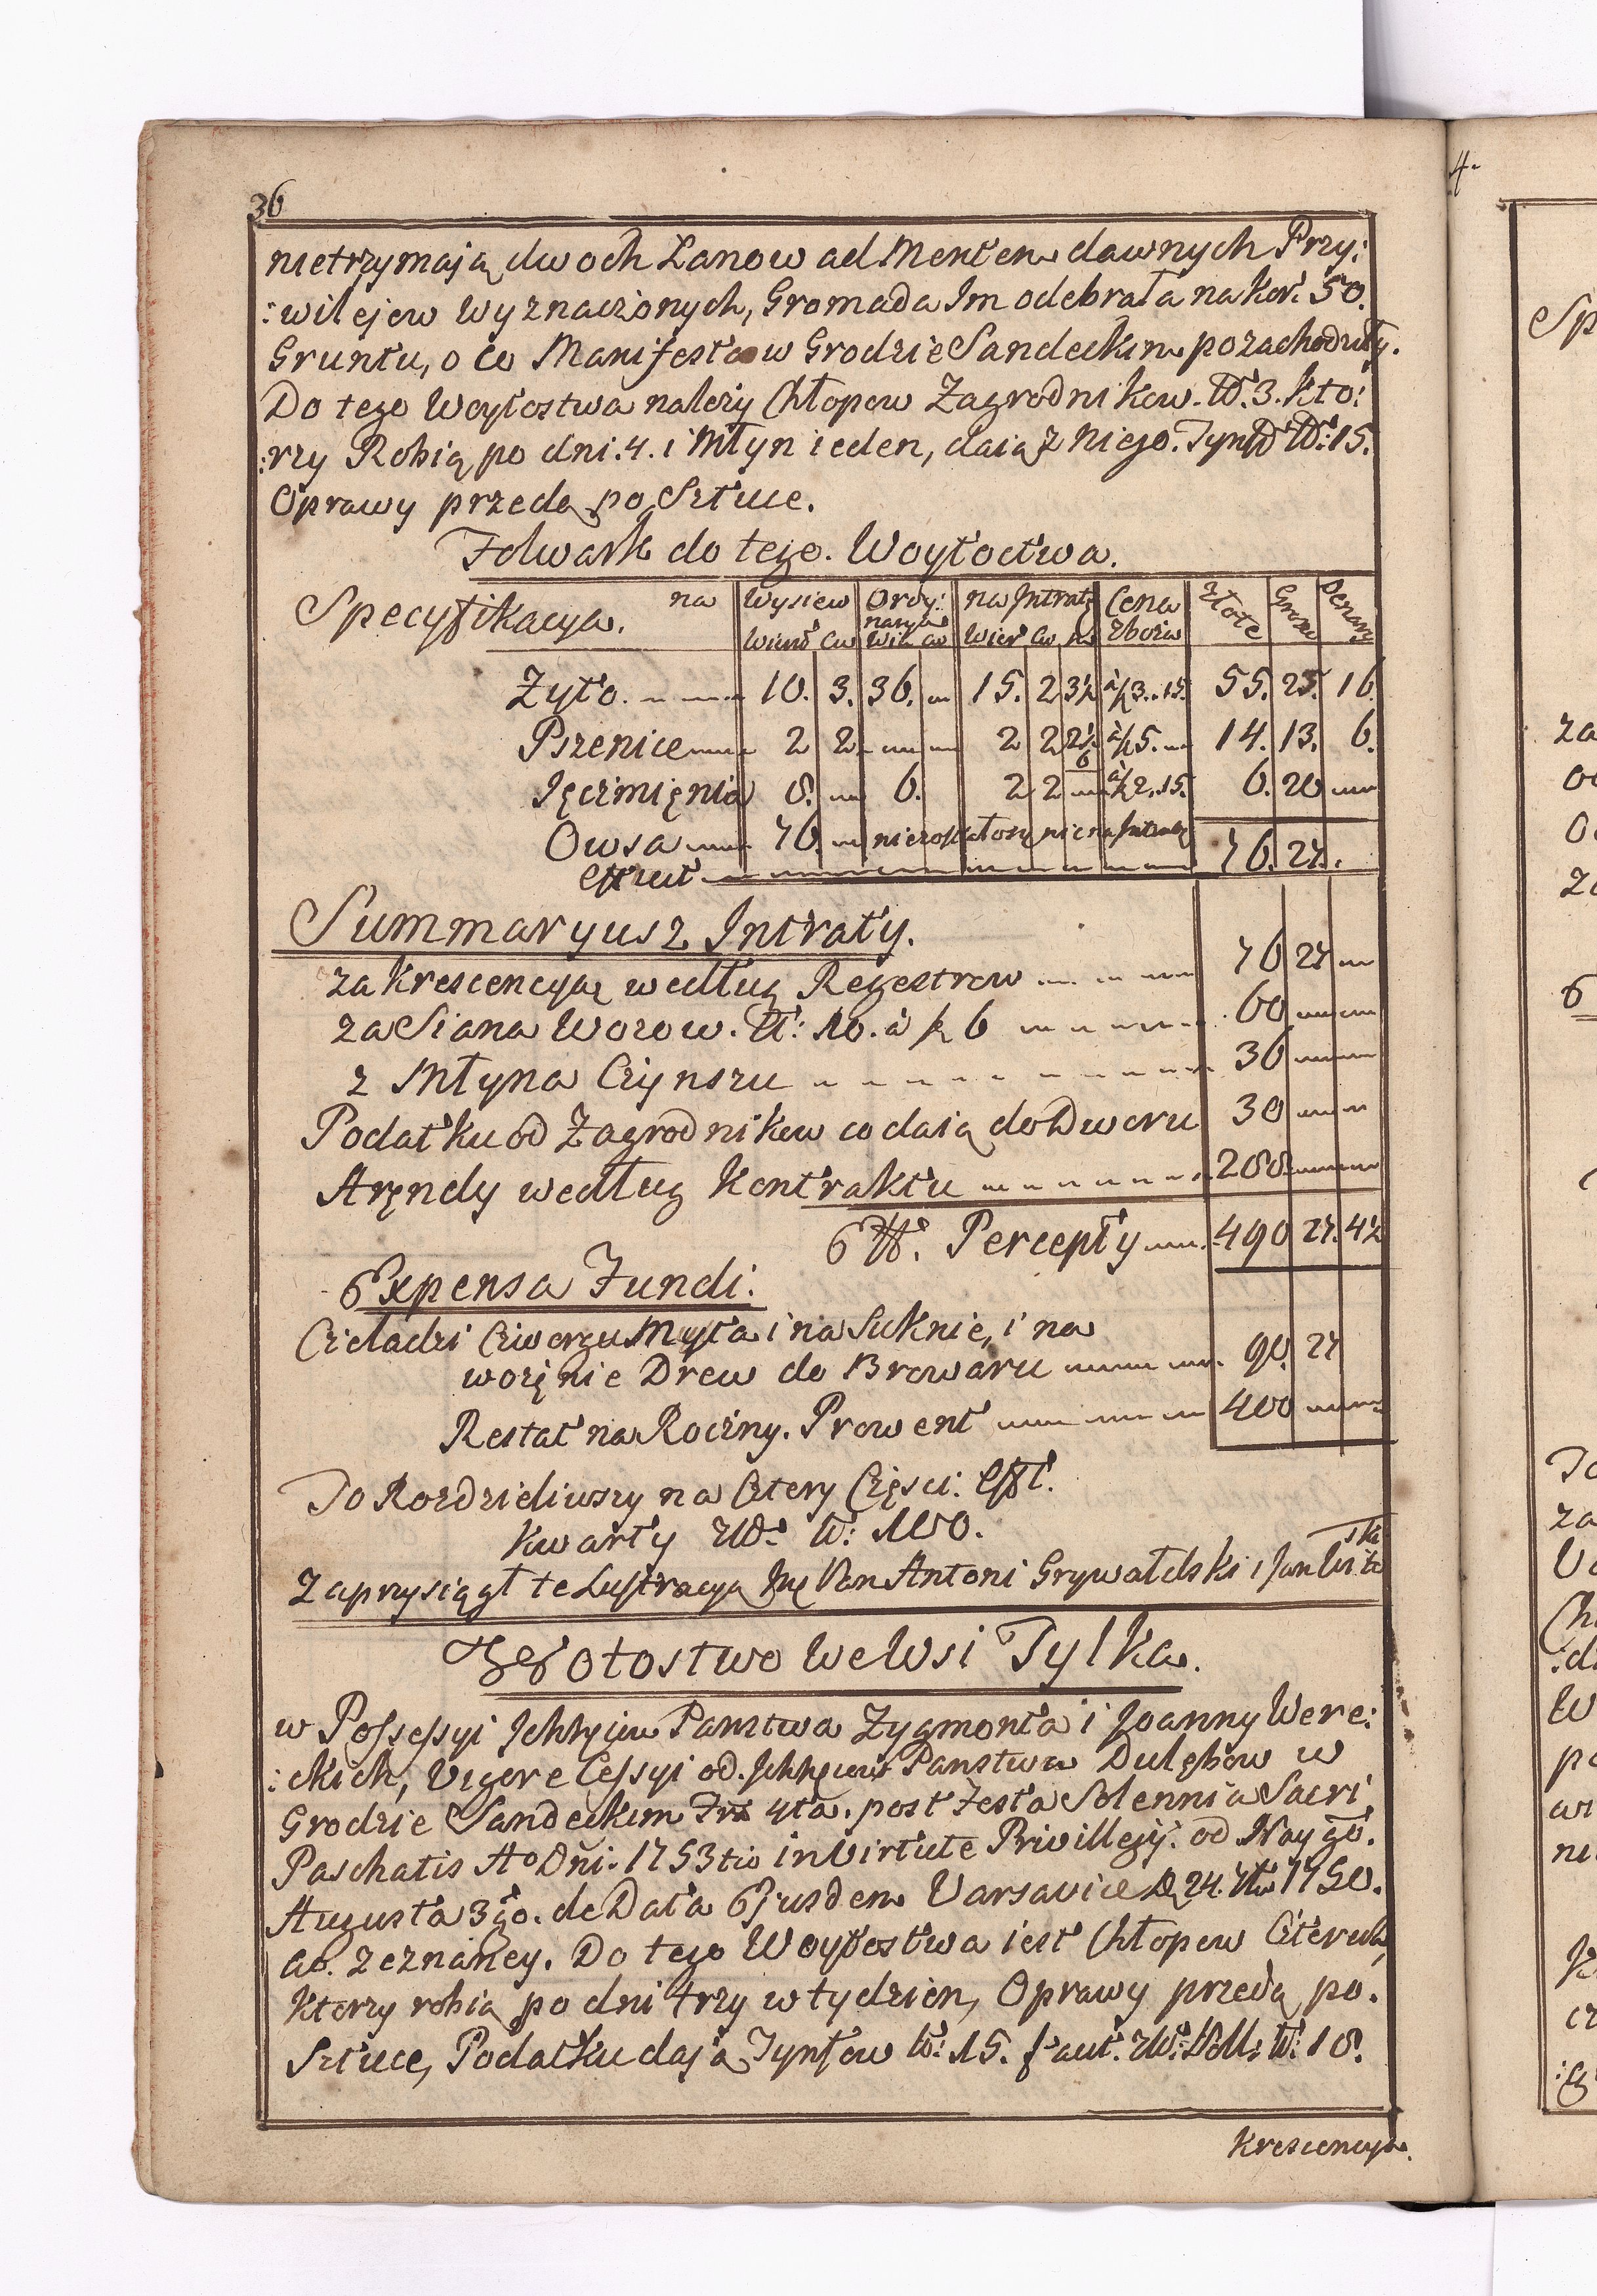 36
nietrzymaią dwoch Łanow ad Mentem dawnych Przy:
:wilejow Wyznaczonych, Gromada Im odebrała na Kor: 50.
Gruntu, o co Manifesta w Grodzie Sandeckim pozachodziły.
Do tego Woytostwa należy Chłopow Zagrodnikow. N: 3. Kto:
:rzy Robią po dni. 4. i Młyn ieden, daią z Niego. Tynff N: 15.
Oprawy przedą po Sztuce.
Folwark do tego. Woytoctwa.
Specyfikacya. na Wysiew Ordy: na Intratę Cena Złote Grosze Denary
naryą Zboża
Żyto. 10. 3. 36. 15. 2 3½ à 3..15. 55. 25. 16.
Pszenice 2 2 2 2 2½ à 5. 14. 13. 6.
Jęczmięnia 8. 6. 2 2 à 2.15. 6. 20
Owsa 76.
76. 27.
Summaryusz Intraty.
za Krescencyą według Regestrow 76 27
za Siana Wozow. N: 10. à 6 60
z Młyna Czynszu 36
Podatku od Zagrodnikow co daią do Dworu 30
Aręndy według Kontraktu 288
Percepty 490 27. 4½
Expensa Fundi.
Czeladzi Czworgu Myta i na Suknie, i na
wożęnie Drew do Browaru 90. 27
Restat na Roczny. Prowent 400
To Rozdzieliwszy na Cztery Częsci.
Kwarty N: 100.
Zaprzysiągł te Lustracyą Pan Antoni Grywalski i Jan
Woytostwo we Wsi Tylka.
w Possessyi Panstwa Zygmonta i Joanny Were:
:ckich, Vigore Cessyi od. Panstwa Dulębow w
Grodzie Sandeckim 4ta. post Festa Solennia Sacri
Paschatis Ao Dni. 1753tio in Virtute Privillegij. od Naygo.
Augusta 3go. de Data Ejusdem Varsavice 24. 1750.
ac. zeznaney. Do tego Woytostwa iest Chłopow Cterech,
Ktorzy robią po dni trzy w tydzien, Oprawy przedą po.
Sztuce, Podatku dają Tynfow N: 15. N: 18.
Krescencya.